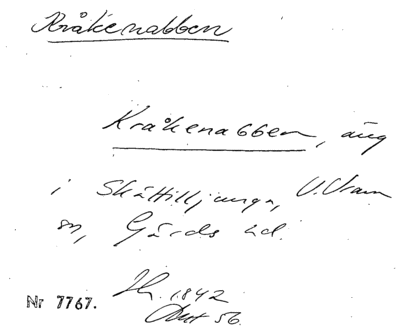 Kråkenabben
Kråkenabben, äng
i Skättilljunga, V. Vram
sn, Gärds hd.
1842
Nr 7767.
56.